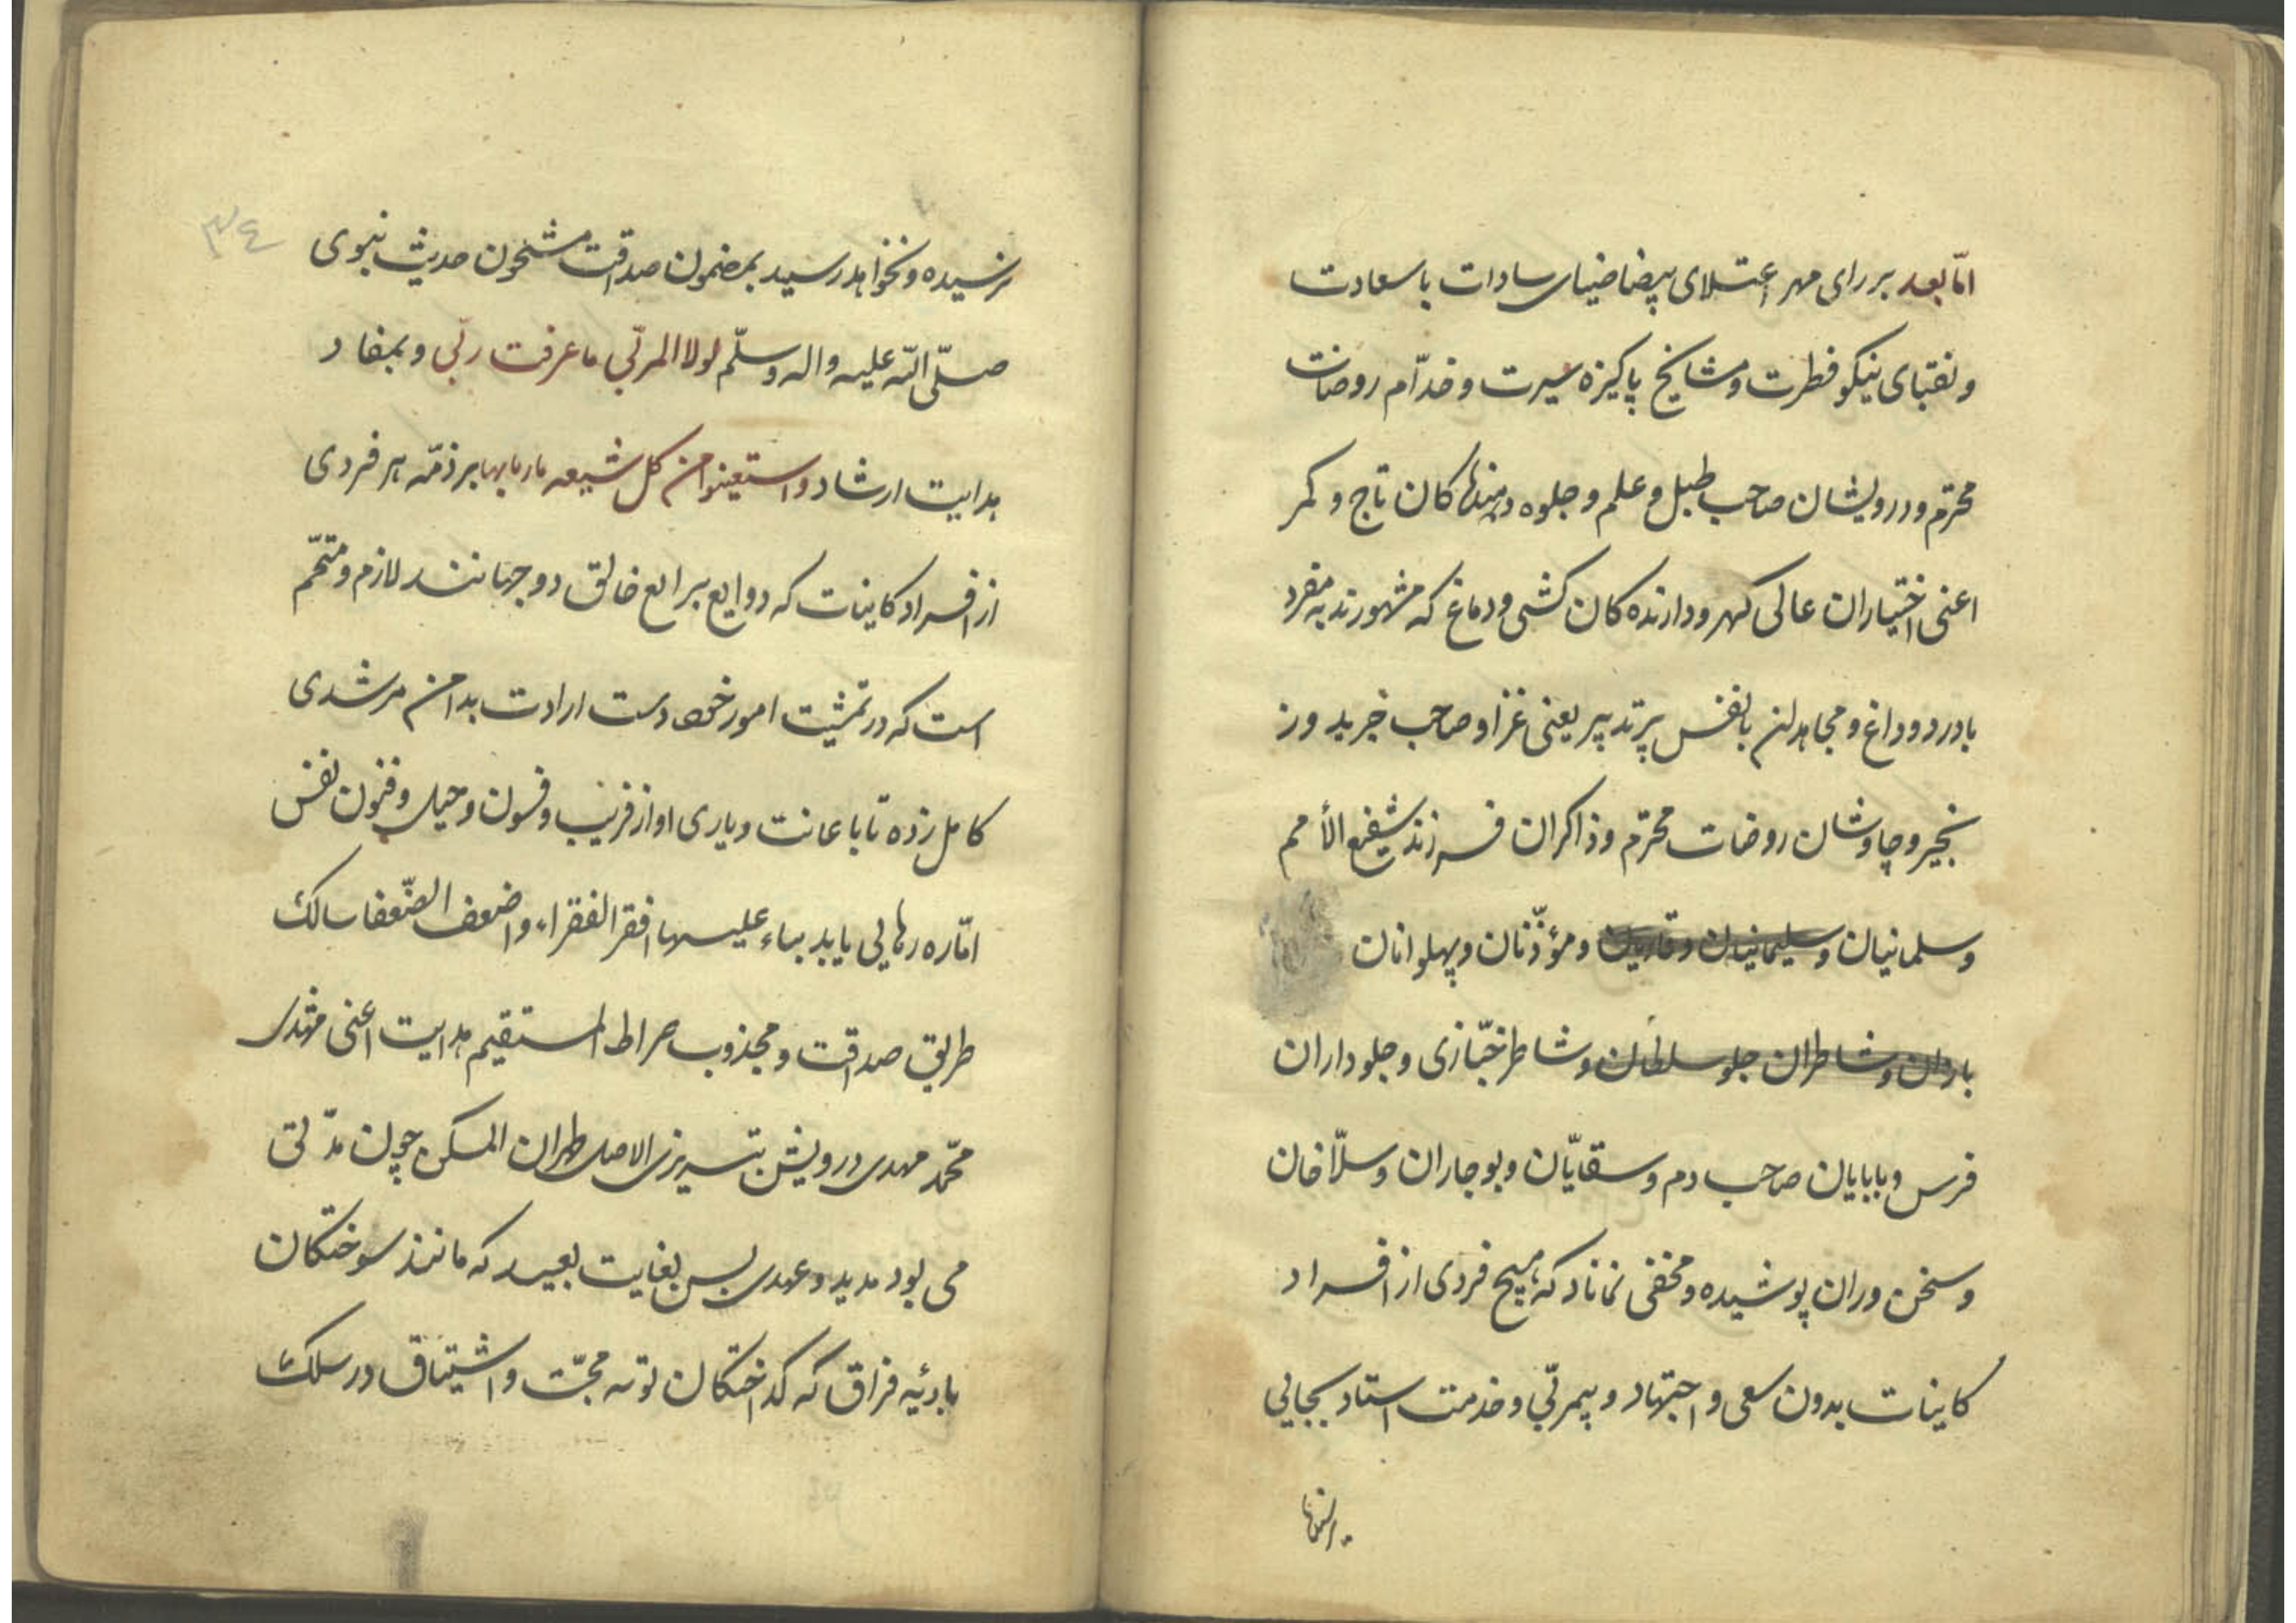 امّا بعد بر رای مهر اعتلای بیضا ضیای سادات با سعادت
و نقبای نیکو فطرت و مشایخ پاکیزه سیرت و خدّام روضات
محترم و درویشان صاحب طبل و علم و جلوه دهنده‌کان تاج و کمر
اعنی اختیاران عالی کهر و دارنده کان کشی و دماغ که مشهورند به مفرد
با درد و داغ و مجاهدان با نفس پرتدپیر یعنی غزا و صاحب خیر بد و رز
نجیر و چاوشان روضات محترم و ذاکران فرزند شفیع الأمم
و سلمانیان و سلیمانیان و قاریان و مؤذّنان و پهلوانان
یاردان و شاطران جلو سلطان و شاطر خبّازی و جلوداران
فرس و بابایان صاحب دم و سقایّان و بوجاران و سلّاخان
و سخن وران پوشیده و مخفی نماناد که هیچ فردی از افراد
کاینات بدون سعی و اجتهاد و بیمربّی و خدمت استاد بجایی
نرسیده و نخواهد رسید بمضمون صداقت مشحون حدیث نبوی
صلّی اللّه علیه واله وسلّم لولا المربّی ما عرفت ربّی و بمفاد
هدایت ارشاد و استعینوا من کل شیعه بر ذمّه هر فردی
از افراد کاینات که دوایع برایع خالق دو جهانند لازم و متحّم
است که در تمشیت امور خود دست ارادت بدامن مرشدی
کامل زده تا باعانت و یاری او از فریب و فسون و حیل و فنون نفس
امّاره رهایی یابد بناء علیها افقر الفقراء و اضعف الضّعفا سالک
طریق صداقت و مجذوب صراط المستقیم هدایت اعنی مرشدی
محّمد مهدی درویش تبریزی الاصل طهران المسکن چون مدّتی
می بود مدید و عهدی بس بغایت بعید که مانند سوختکان
بادئیه فراق که کداختکان بوته محبّت و اشتیاق در سلک